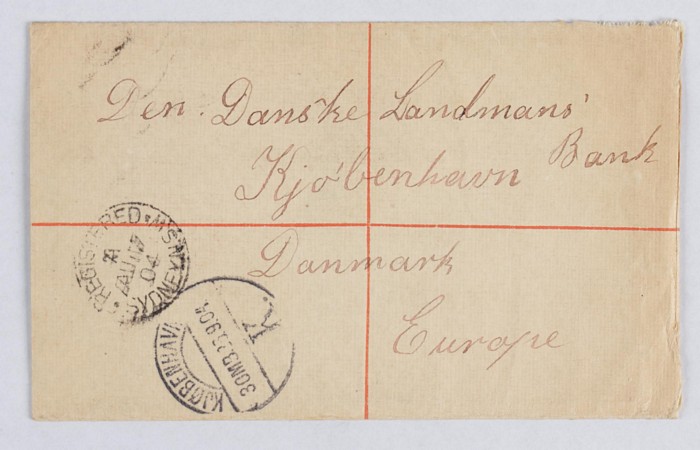 Den Danske Landmans'
Bank
Kjöbenhavn
Danmark
Europe
REGISTERED · N.S.W
SYDNEY
04
KJØBENHAVN
K.